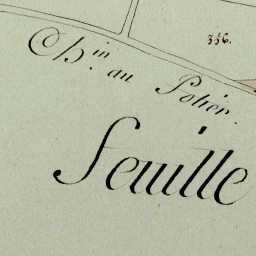 356.
Ch.in au Potier.
Feuille